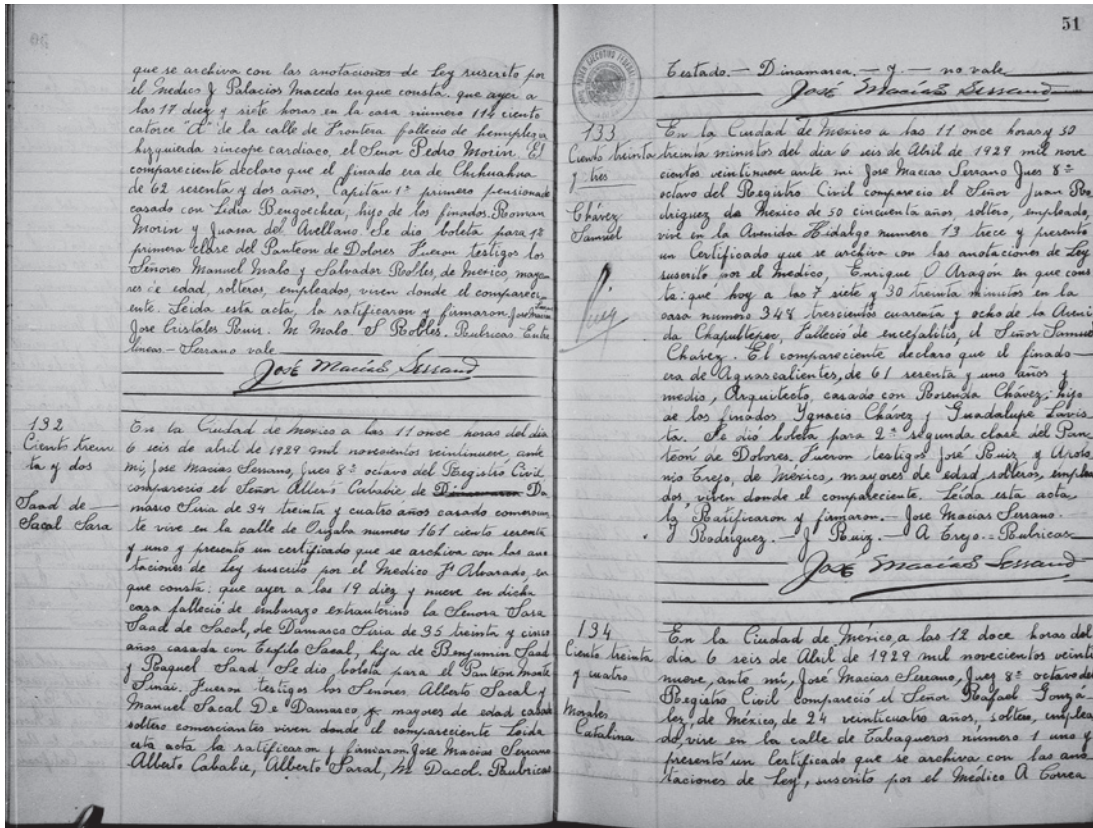 que se archiva con las anotaciones de Ley suscrito por
el Medico J Palacios Macedo en que consta. que ayer a
las 17 diez y siete horas en la casa número 114 ciento
catorce "A" de la calle de Frontera fallecio de hemiplegia
hizquierda sincope cardiaco, el Señor Pedro Morin. El
compareciente declaro que el finado era de Chihuahua
de 62 sesenta y dos años, Capitán 1º primero pensionado
casado con Lidia Bengoechea, hijo de los finados. Roman
Morin y Juana del Avellano. Se dio boleta para 1ª
primera clase del Panteon de Dolores Fueron testigos los
Señores Manuel Malo y Salvador Robles, de Mexico, mayo-
res de edad, solteros, empleados, viven donde el compareci-
ente. Leida esta acta, la ratificaron y firmaron, Jose Macias Serrano
Jose Cristales Ruis. M Malo. S Robles. Rubricas. Entre
lineas - Serrano vale
José Macías Serrano
132
Ciento trein
ta y dos
Saad de
Sacal Sara
En la Ciudad de Mexico a las 11 once horas del día
6 seis de abril de 1929 mil novecientos veintinueve, ante
mi, Jose Macias Serrano, Jues 8º octavo del Registro Civil,
comparecio el Señor Alberto Cababie de Dinamarca Da
masco Siria de 34 treinta y cuatro años casado comercian
te vive en la calle de Orizaba numero 161 ciento sesenta
y uno y presento un certificado que se archiva con las ano
taciones de Ley suscrito por el Medico Fº Alvarado, en
que consta: que ayer a las 19 diez y nueve en dicha
casa falleció de embarazo extrauterino la Señora Sara
Saad de Sacal, de Damasco Siria de 35 treinta y cinco
años casada con Teofilo Sacal, hija de Benjamin Saad
y Raquel Saad. Se dio boleta para el Panteón Monte
Sinai. Fueron testigos los Señores, Alberto Sacal y
Manuel Sacal De Damasco y mayores de edad casado
soltero comerciantes viven donde el compareciente Leida
esta acta la ratificaron y firmaron, Jose Macias Serrano
Alberto Cababie, Alberto Saral, M Dacol. Rubricas
51
Testado. - Dinamarca. - y. - no vale
José Macías Serrano
133
Ciento treinta
y tres
Chávez
Samuel
En la Ciudad de Mexico a las 11 once horas y 30
treinta minutos del dia 6 seis de Abril de 1929 mil nove
cientos veintinueve ante mi Jose Macias Serrano Jues 8º
octavo del Registro Civil comparecio el Señor Juan Ro
driguez de Mexico de 50 cincuenta años, soltero, empleado,
vive en la Avenida Hidalgo numero 13 trece y presento
un Certificado que se archiva con las anotaciones de Ley
suscrito por el Medico, Enrique O Aragón en que cons
ta: que hoy a las 7 siete y 30 treinta minutos en la
casa numero 348 trescientos cuarenta y ocho de la Aveni
da Chapultepec, Falleció de encefalitis, el Señor Samuel
Chavez. El compareciente declaro que el finado
era de Aguascalientes, de 61 sesenta y uno años y
medio, Arquitecto, casado con Rosenda Chávez; hijo
de los finados Ygnacio Chávez y Guadalupe Lavis
ta. Se dió boleta para 2ª segunda clase del Pan
teon de Dolores. Fueron testigos José Ruiz y
Trejo, de México, mayores de edad solteros, emplea
dos viven donde el compareciente. Leida esta acta,
la Ratificaron y firmaron. - Jose Macias Serrano. -
J Rodríguez. - J Ruiz. - A Trejo. - Rubricas
José Macías Serrano
134
Ciento treinta
y cuatro
Morales
Catalina
En la Ciudad de México a las 12 doce horas del
dia 6 seis de Abril de 1929 mil novecientos veinti
nueve, ante mí, José Macias Serrano, Juez 8º octavo del
Registro Civil compareció el Señor Rafael Gonzá-
lez, de México, de 24 veinticuatro años, soltero, emplea
do, vive en la calle de Tabaqueros número 1 uno y
presentó un Certificado que se archiva con las ano
taciones de Ley, suscrito por el Médico A Correa